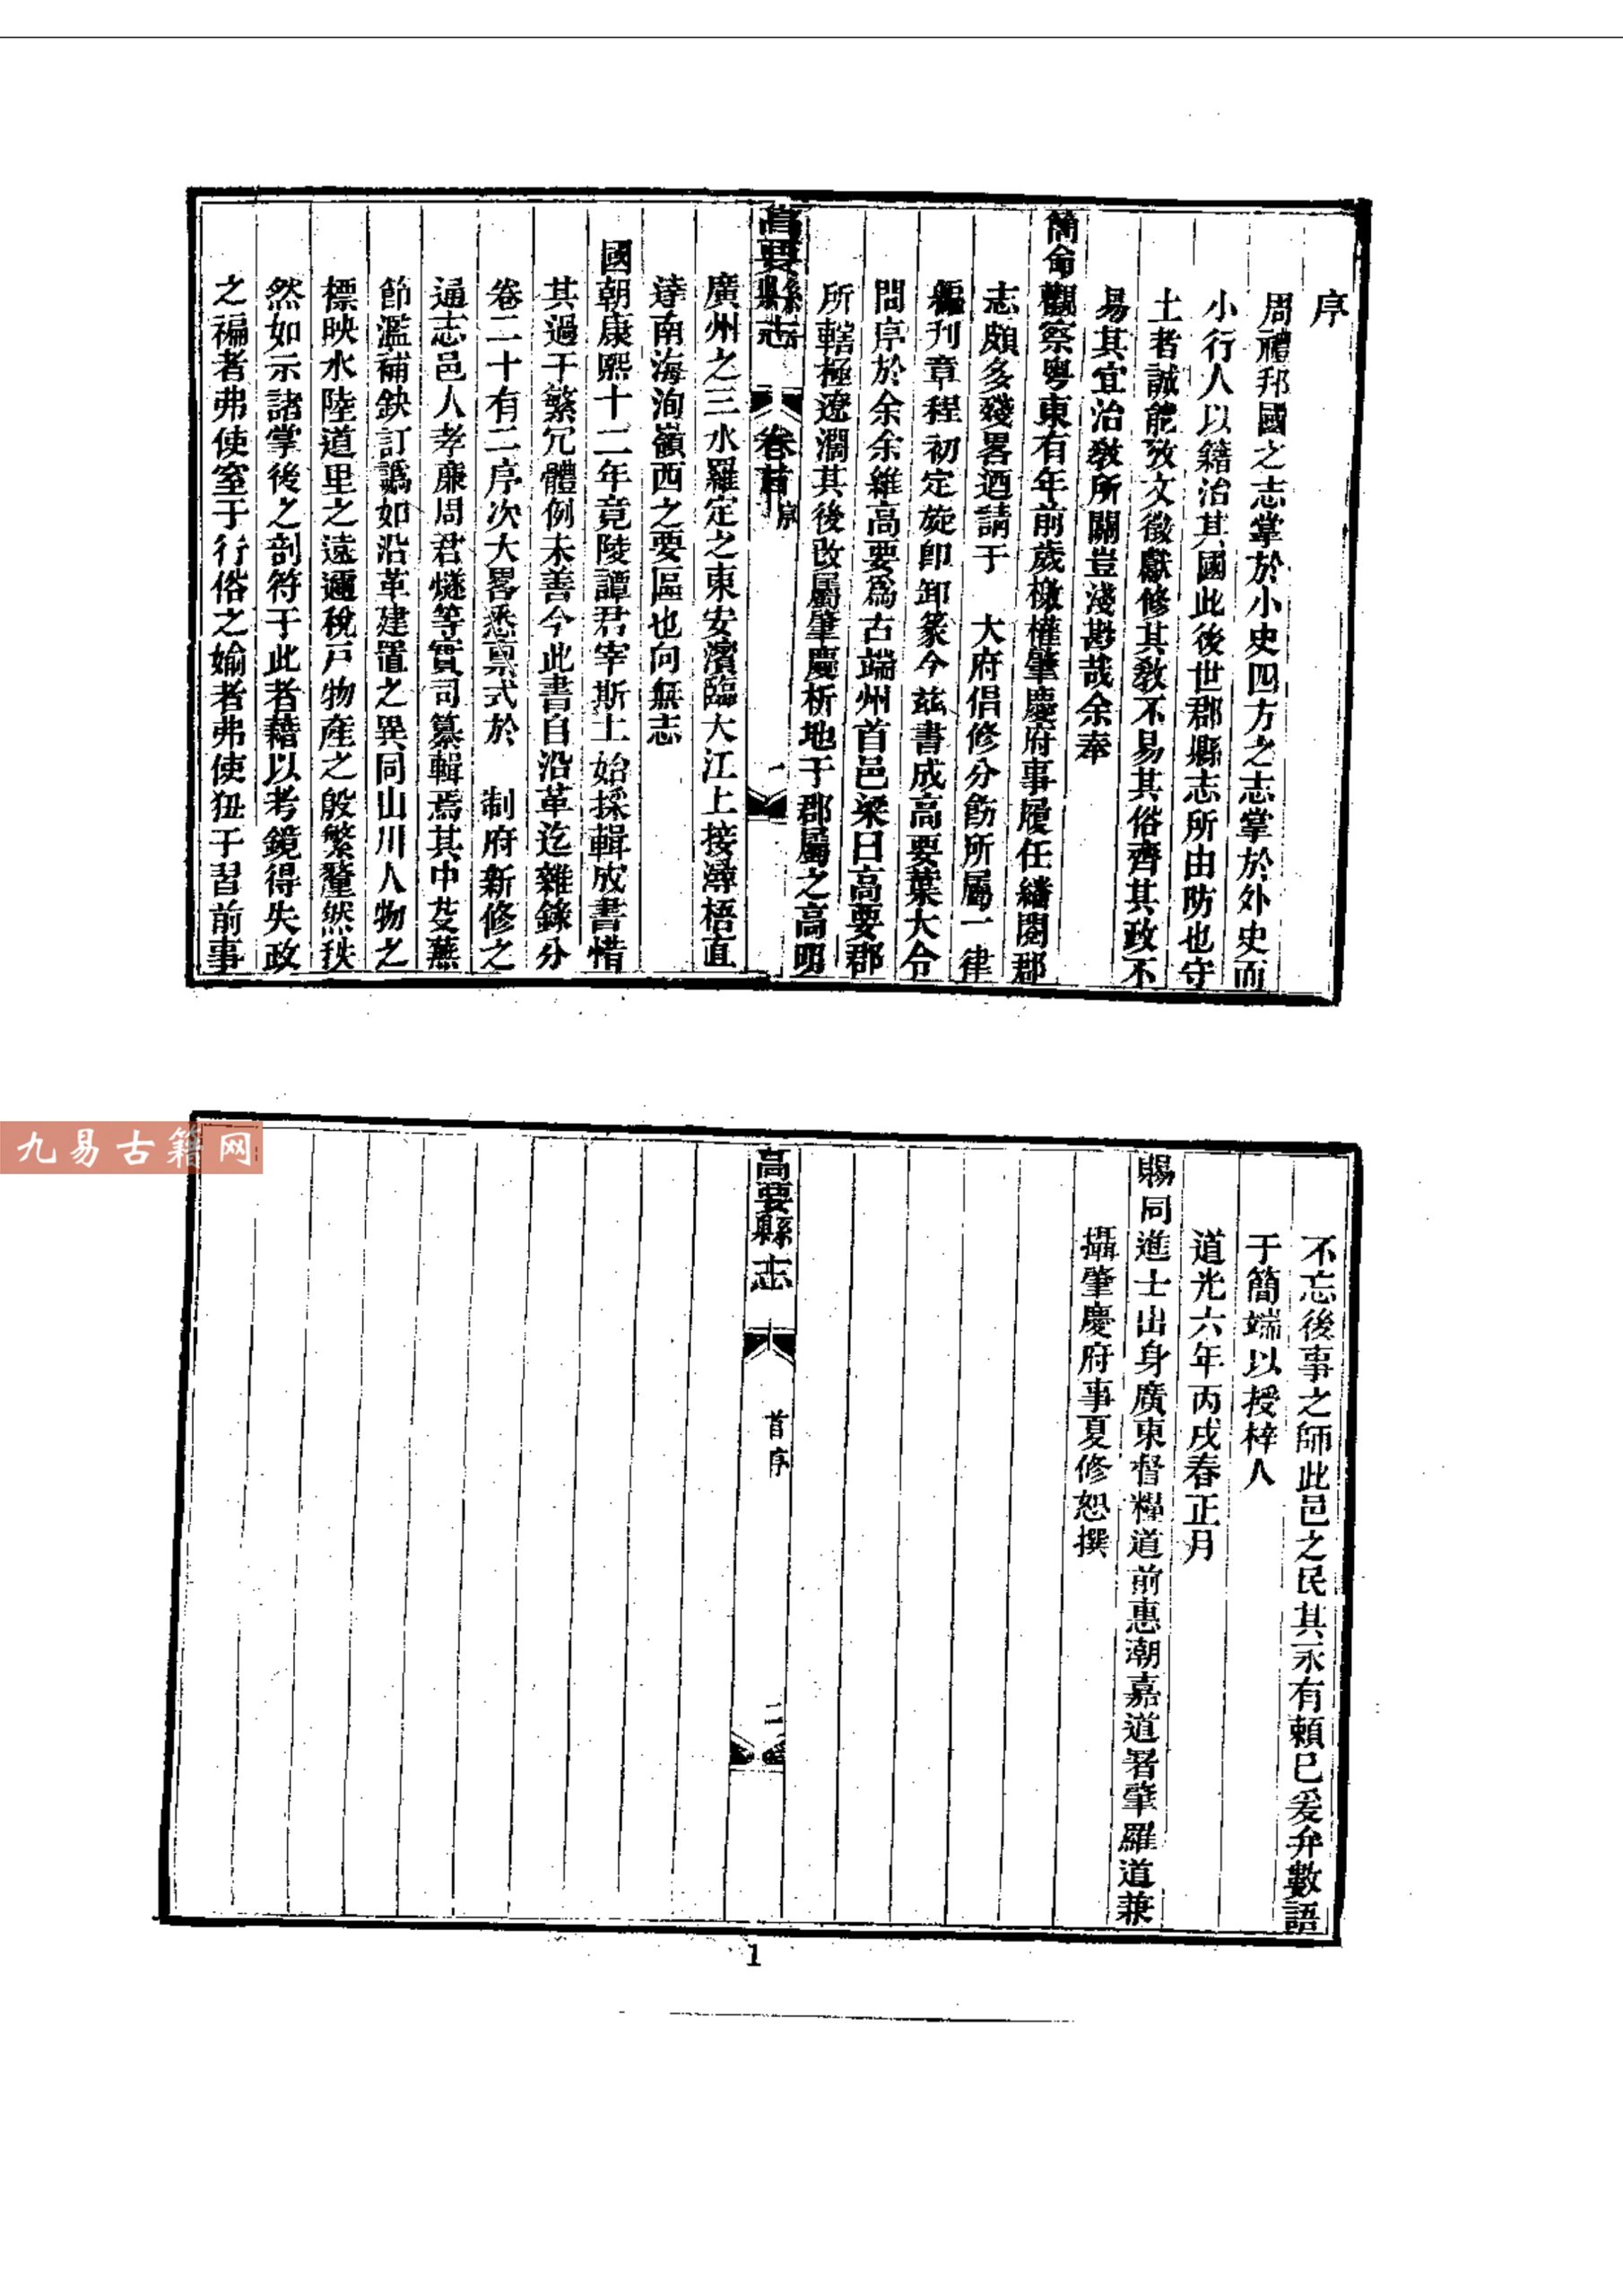 序
周禮邦國之志掌於小史四方之志掌於外史而
小行人以籍治其國此後世郡縣志所由防也守
土者誠能攷文徵獻修其敎不易其俗齊其政不
易其宜治敎所關豈淺尠哉余奉
簡命觀察粤東有年前歲檄權肇慶府事履任繙閱郡
志頗多殘畧迺請于 大府倡修分飭所屬一律
編刊章程初定旋卽卸篆今兹書成高要葉大令
問序於余余維高要爲古端州首邑梁曰高要郡
所轄極遼濶其後改屬肇慶析地于郡屬之高明
高要縣志 卷首 序 一
廣州之三水羅定之東安濱臨大江上接潯梧直
達南海洵嶺西之要區也向無志
國朝康熙十二年竟陵譚君宰斯土始採輯成書惜
其過于繁冗體例未善今此書自沿革迄雜錄分
卷二十有二序次大畧悉禀式於 制府新修之
通志邑人孝廉周君燧等實司纂輯焉其中芟蕪
節濫補缺訂譌如沿革建置之異同山川人物之
標映水陸道里之遠邇稅戸物產之殷繁釐然秩
然如示諸掌後之剖符于此者藉以考鏡得失政
之褊者弗使窒于行俗之媮者弗使狃于習前事
不忘後事之師此邑之民其永有賴巳爰弁數語
于簡端以授梓人
道光六年丙戌春正月
賜同進士出身廣東督糧道前惠潮嘉道署肇羅道兼
攝肇慶府事夏修恕撰
高要縣志 首序 二
1
九易古籍网